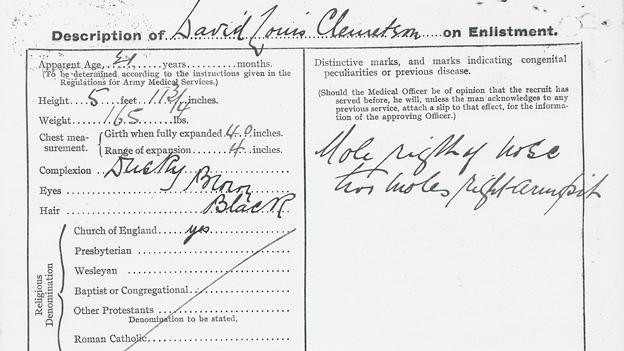 Description of David Louis Clemetson on Enlistment.
Apparent Age, 21 years months.
(To be determined according to the instructions given in the
Regulations for Army Medical Services.)
Height 5 feet 11 3/4 inches.
Weight 165 lbs.
Chest measurement. Girth when fully expanded 40 inches.
Range of expansion 4 inches.
Complexion Dusky
Eyes Brown
Hair Black
Religious Denomination
Church of England yes
Presbyterian
Wesleyan
Baptist or Congregational
Other Protestants
Denomination to be stated.
Roman Catholic
Distinctive marks, and marks indicating congenital
peculiarities or previous disease.
(Should the Medical Officer be of opinion that the recruit has
served before, he will, unless the man acknowledges to any
previous service, attach a slip to that effect, for the informa-
tion of the approving Officer.)
Mole rigth of nose
two moles right armpit